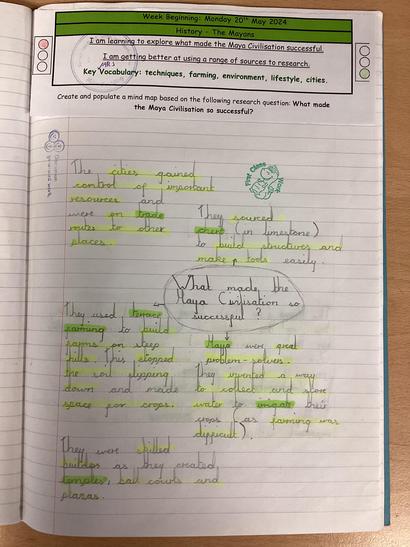 Week Beginning: Monday 20th May 2024
History - The Mayans
I am learning to explore what made the Maya Civilisation successful.
I am getting better at using a range of sources to research.
Key Vocabulary: techniques, farming, environment, lifestyle, cities.
Create and populate a mind map based on the following research question: What made
the Maya Civilisation so successful?
The cities gained
control of important
resources and
were on trade
routes to other
places.
First Class
Work
They sourced
chert (in limestone)
to build structures and
make tools easily.
What made the
Maya Civilisation so
successful?
They used terrace
farming to build
farms on steep
hills. This stopped
the soil slipping
down and made
space for crops.
Maya were great
problem-solvers.
They invented a way
to collect and store
water to
their
crops (as farming was
difficult).
They were skilled
builders as they created
temples, ball courts and
plazas.